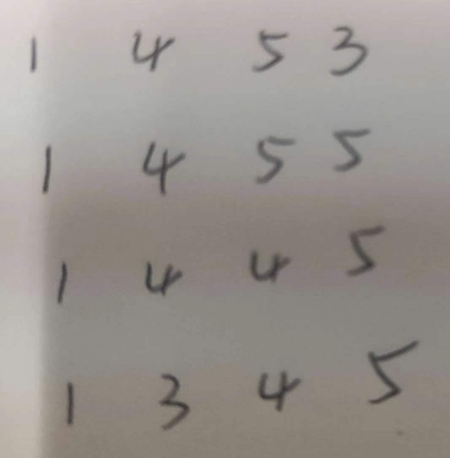 1 4 5 3
1 4 5 5
1 4 4 5
1 3 4 5